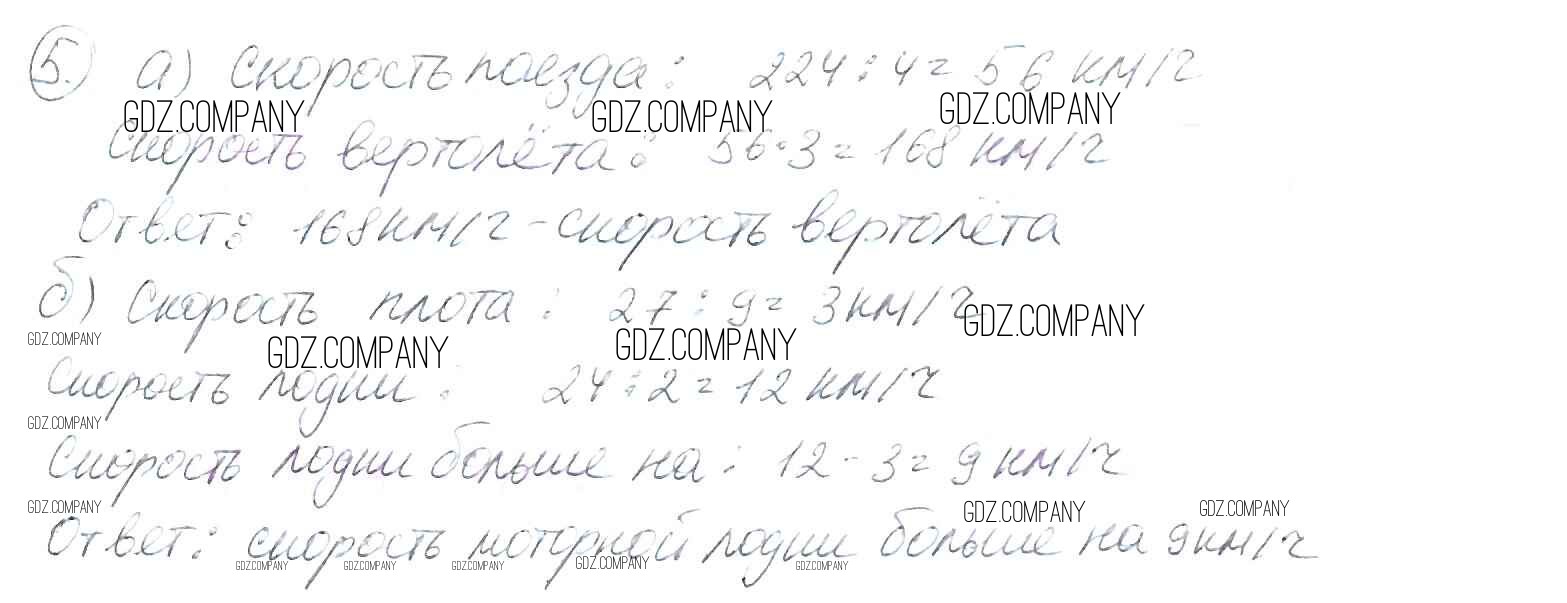 5. а) Скорость поезда: 224 : 4 = 56 км/г
GDZ.COMPANY GDZ.COMPANY GDZ.COMPANY
Скорость вертолёта: 56·3 = 168 км/г
Ответ: 168 км/г - скорость вертолёта
б) Скорость плота: 27 : 9 = 3 км/ч
GDZ.COMPANY GDZ.COMPANY GDZ.COMPANY GDZ.COMPANY
Скорость лодки: 24 : 2 = 12 км/ч
GDZ.COMPANY
Скорость лодки больше на: 12 - 3 = 9 км/ч
GDZ.COMPANY GDZ.COMPANY GDZ.COMPANY
Ответ: скорость моторной лодки больше на 9 км/ч
GDZ.COMPANY GDZ.COMPANY GDZ.COMPANY GDZ.COMPANY GDZ.COMPANY